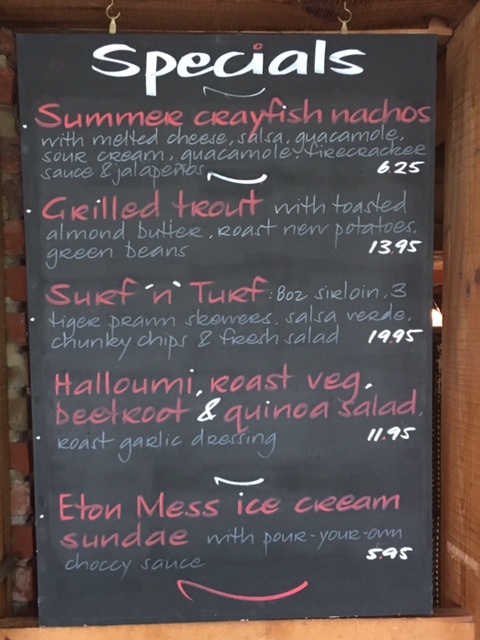 Specials
Summer crayfish nachos
with melted cheese, salsa, guacamole,
sour cream, guacamole, firecracker
sauce & jalapeños 6.25
Grilled trout with toasted
almond butter, roast new potatoes,
green beans 13.95
Surf 'n' Turf: 8oz sirloin, 3
tiger prawn skewers, salsa verde,
chunky chips & fresh salad 19.95
Halloumi, roast veg,
beetroot & quinoa salad,
roast garlic dressing 11.95
Eton Mess ice cream
sundae with pour-your-own
choccy sauce 5.95